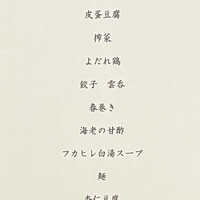 皮蛋豆腐
搾菜
よだれ鶏
餃子　雲呑
春巻き
海老の甘酢
フカヒレ白湯スープ
麺
杏仁豆腐